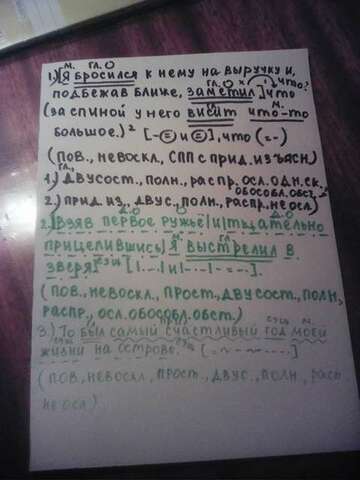 м. гл.
1.) [Я бросился к нему на выручку и,
подбежав ближе, заметил,] что что?
(за спиной у него висит что-то
большое.)² [-⊜ и ⊜], что (=-)
(пов., невоскл, СПП с прид. изъясн)
1.) двусост., полн., распр, осл. одн. ск,
обособл. обст.
2.) прид. из, двус., полн, распр, не осл)
2.) Взяв первое ружьё и тщательно
прицелившись, я выстрелил в
зверя. [|...| и |...| - = -...].
(пов., невоскл, прост., двусост., полн,
распр, осл. обособл. обст.)
3.) То был самый счастливый год моей
жизни на острове.
(пов., невоскл., прост., двус., полн.,
не осл)